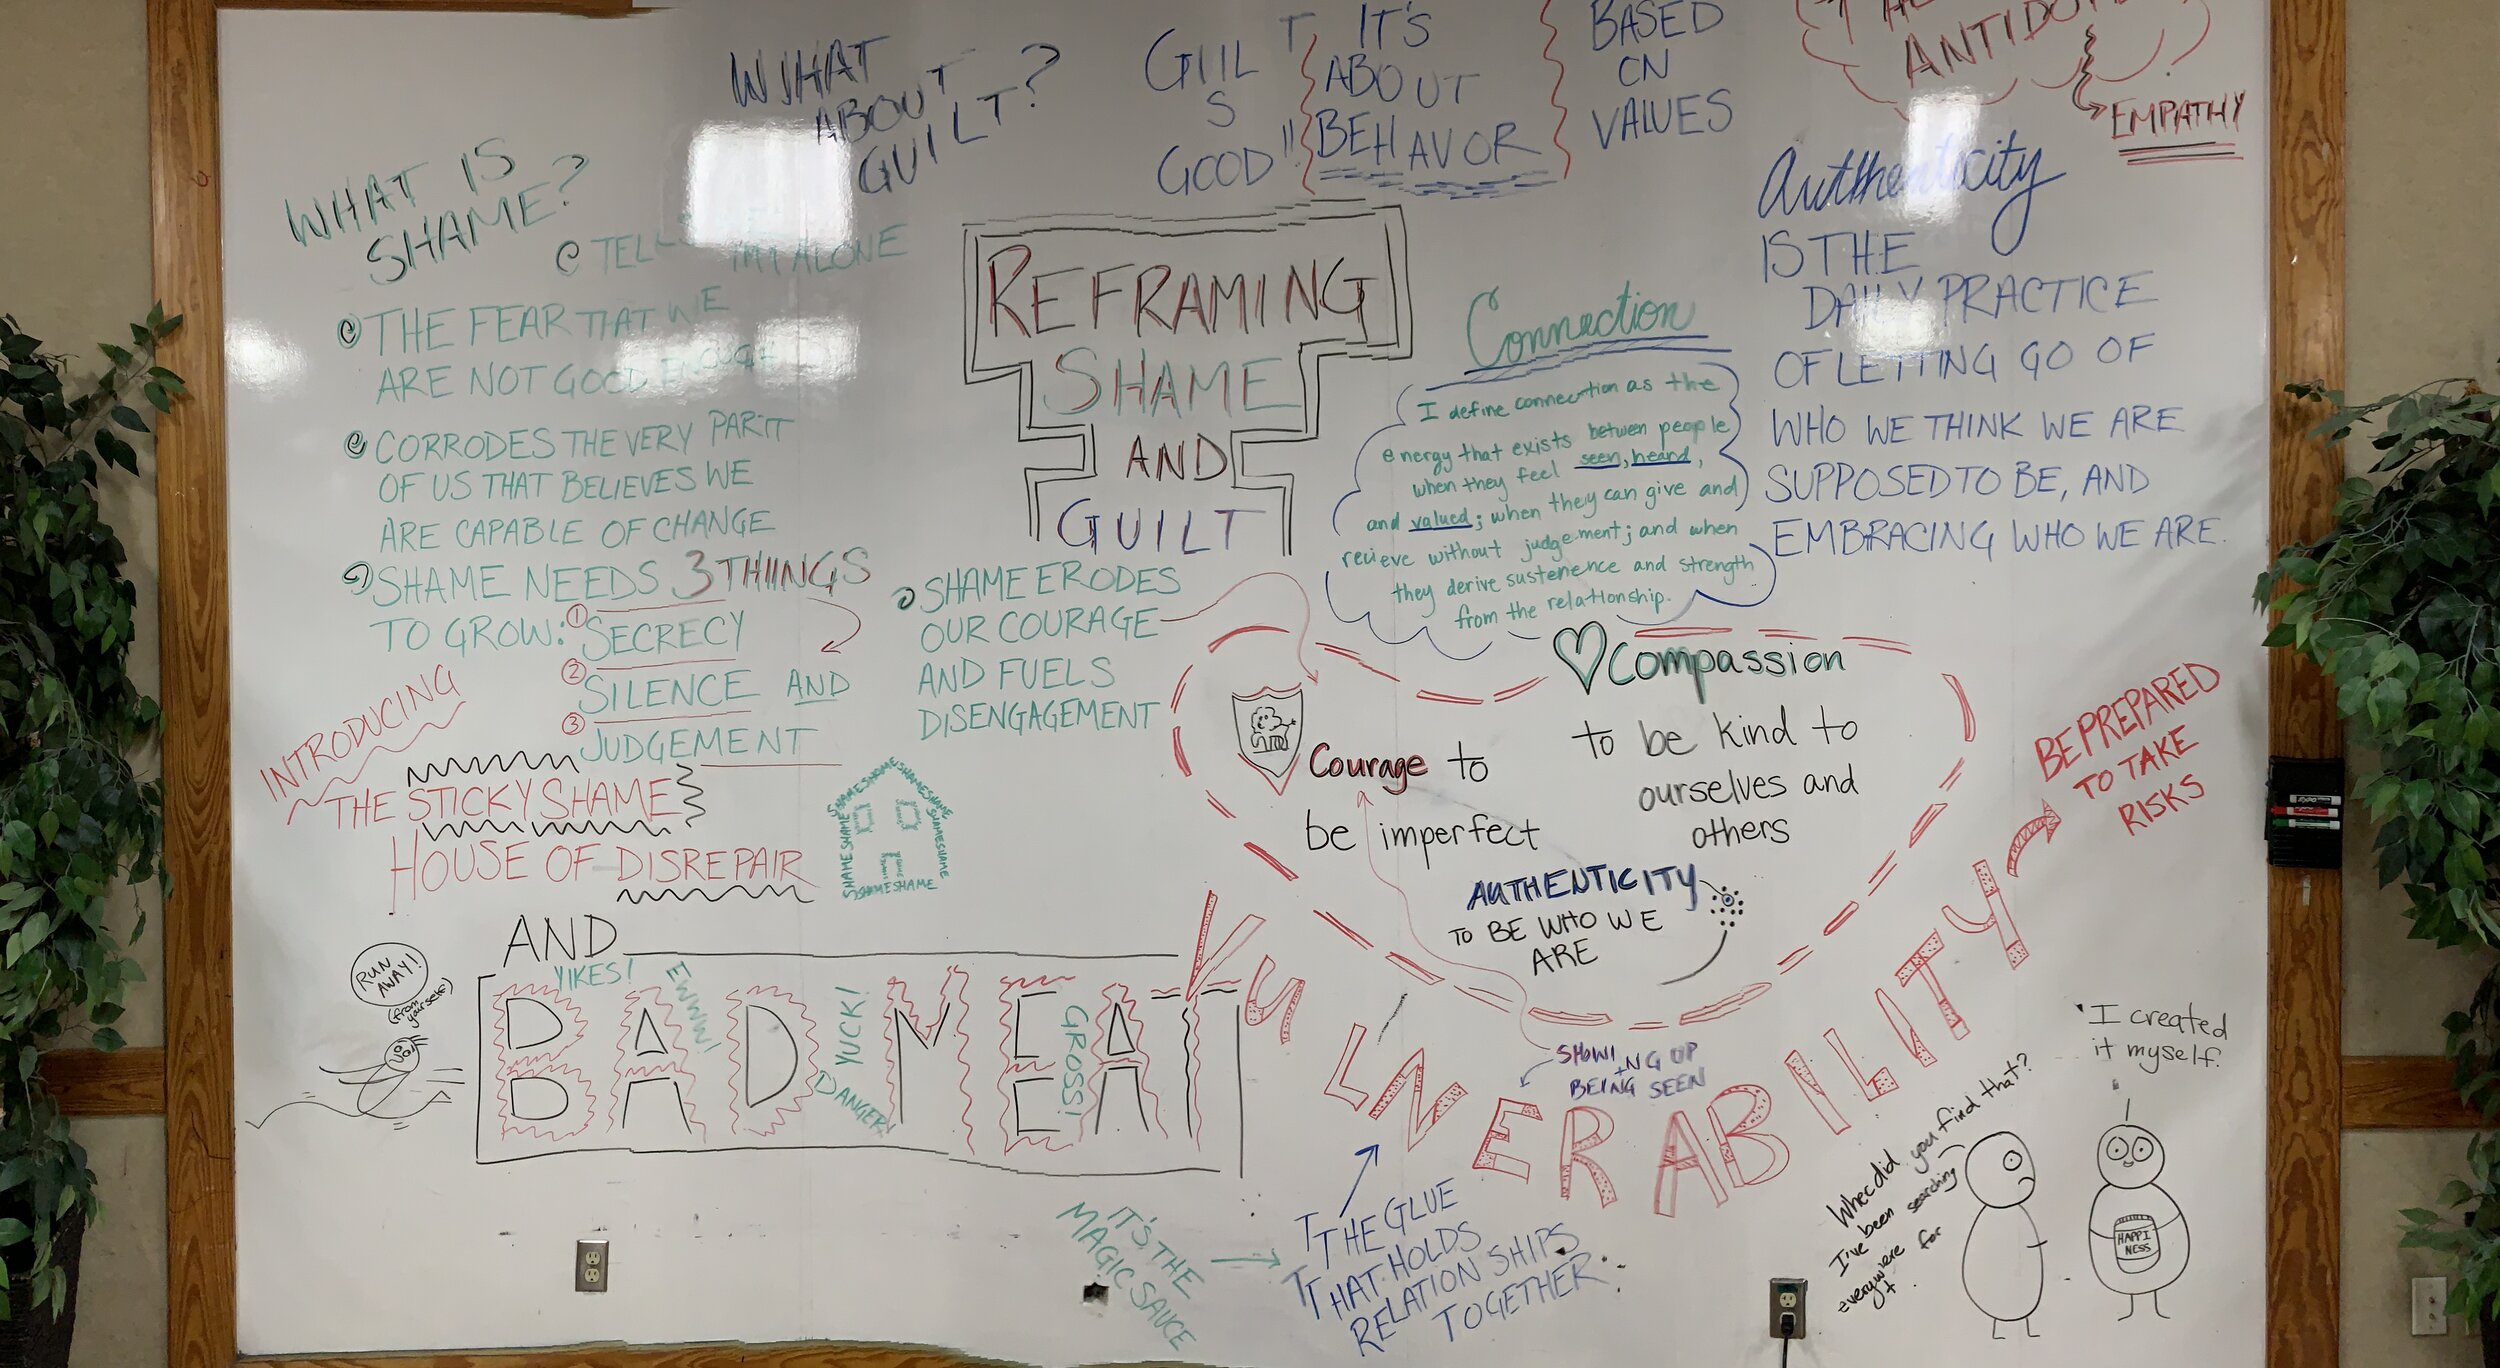 WHAT
ABOUT
GUILT?
GUILT
S
GOOD!!
IT'S
ABOUT
BEHAVOR
BASED
ON
VALUES
ANTIDOTE
EMPATHY
WHAT IS
SHAME?
I'M ALONE
THE FEAR THAT WE
ARE NOT GOOD ENOUGH
CORRODES THE VERY PART
OF US THAT BELIEVES WE
ARE CAPABLE OF CHANGE
SHAME NEEDS 3 THIINGS
TO GROW:
① SECRECY
② SILENCE AND
③ JUDGEMENT
SHAME ERODES
OUR COURAGE
AND FUELS
DISENGAGEMENT
REFRAMING
SHAME
AND
GUILT
Connection
I define connection as the
energy that exists between people
when they feel seen, heard,
and valued; when they can give and
recieve without judgement; and when
they derive sustenence and strength
from the relationship.
Authenticity
IS THE
DAILY PRACTICE
OF LETTING GO OF
WHO WE THINK WE ARE
SUPPOSED TO BE, AND
EMBRACING WHO WE ARE.
INTRODUCING
THE STICKY SHAME
HOUSE OF DISREPAIR
SHAMESHAMESHAMESHAME
SHAMESHAME
SHAMESHAME
SHAMESHAME
AND
BAD MEAT
YIKES!
EWWW!
YUCK!
DANGER!
GROSS!
RUN
AWAY!
(from
yourself)
Courage to
be imperfect
Compassion
to be kind to
ourselves and
others
AUTHENTICITY
TO BE WHO WE
ARE
VULNERABILITY
BE PREPARED
TO TAKE
RISKS
SHOWING UP
+
BEING SEEN
IT'S THE
MAGIC SAUCE
THE GLUE
THAT HOLDS
RELATIONSHIPS
TOGETHER
Where did you find that?
I've been searching
everywere for
it
I created
it myself.
HAPPI
NESS
EXPO